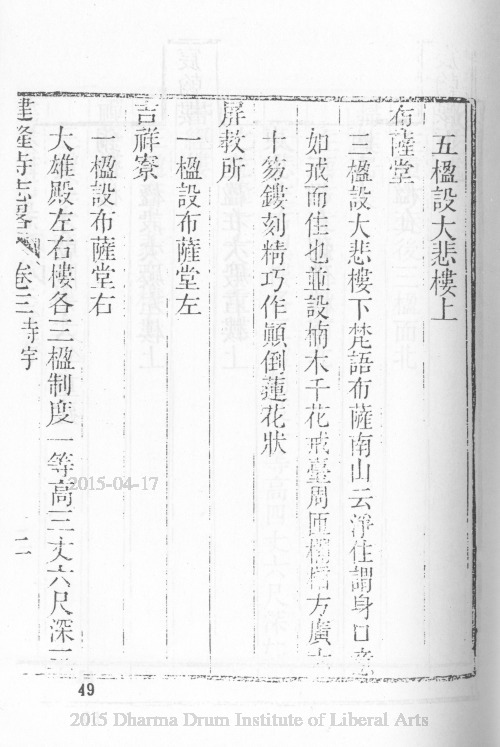 五楹設大悲樓上
布薩堂
三楹設大悲樓下梵語布薩南山云淨住謂身口意
如戒而住也並設楠木千花戒臺周匝欄楯方廣
十笏鏤刻精巧作顚倒蓮花狀
屏教所
一楹設布薩堂左
吉祥寮
一楹設布薩堂右
大雄殿左右樓各三楹制度一等高三丈六尺深三
建隆寺志畧 卷三 寺宇 二
49
2015-04-17
2015 Dharma Drum Institute of Liberal Arts